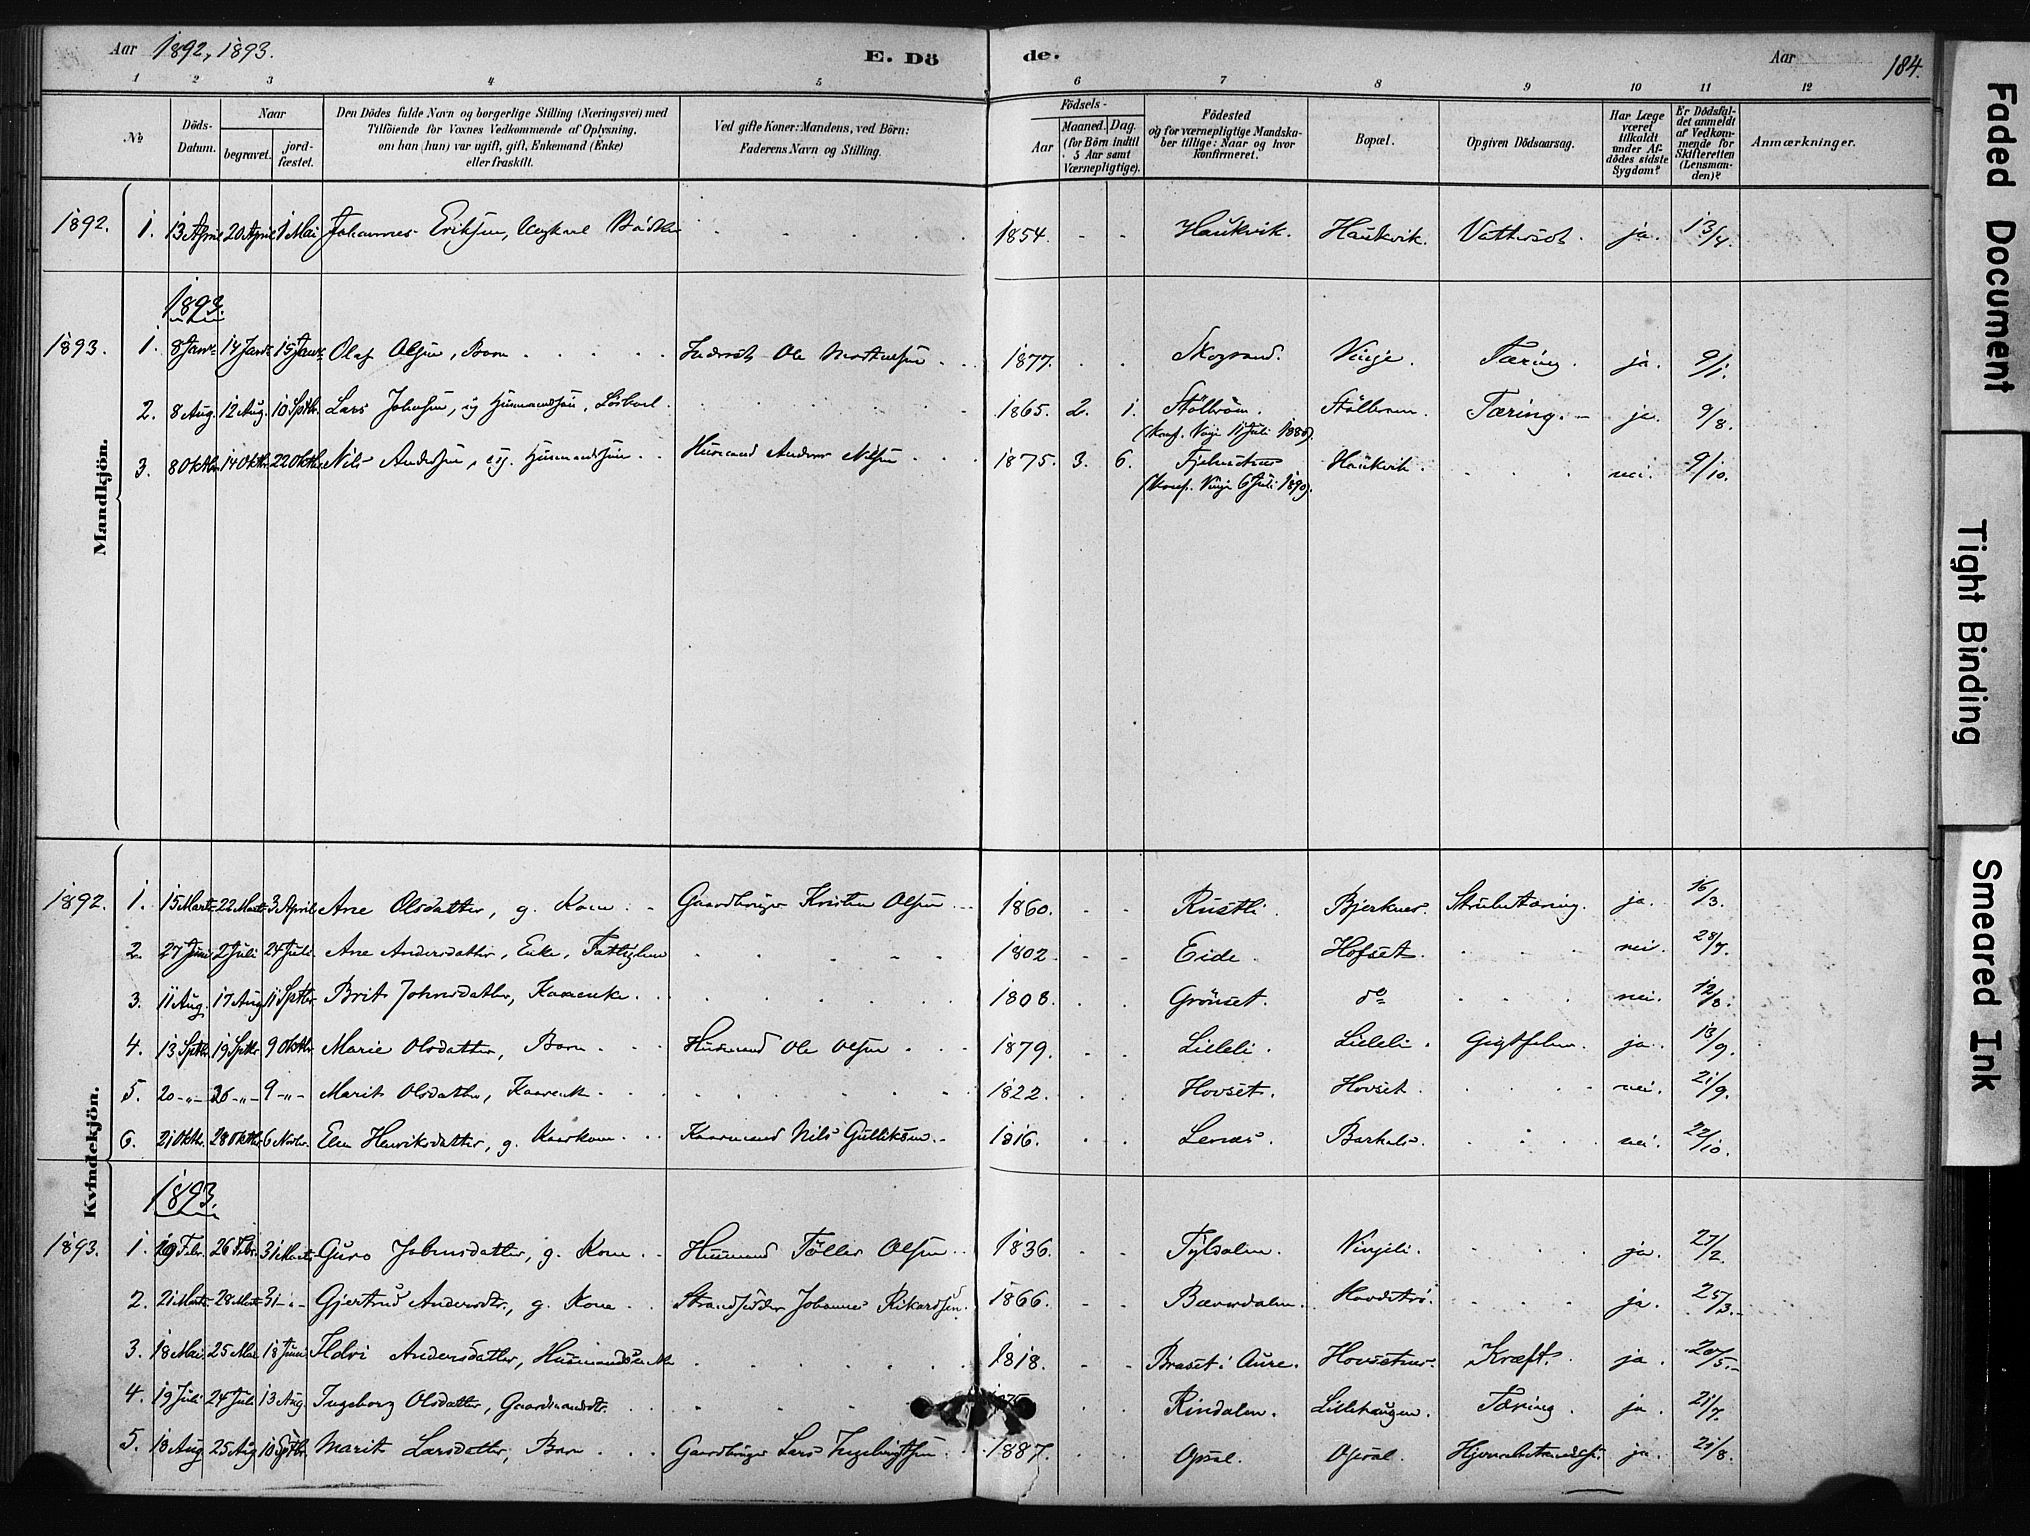 Aar 1892, 1893. E. Dö de. Aar 184.
1 2 3 4 5 6 7 8 9 10 11 12
№ Döds-Datum. Naar begravet. jord-fæstet. Den Dödes fulde Navn og borgerlige Stilling (Næringsvei) med Tilföiende for Voxnes Vedkommende af Oplysning. om han (hun) var ugift, gift, Enkemand (Enke) eller fraskilt. Ved gifte Koner: Mandens, ved Börn: Faderens Navn og Stilling. Födsels- Aar Maaned. Dag. (for Börn indtil 5 Aar samt Værnepligtige). Födested og for værnepligtige Mandskaber tillige: Naar og hvor konfirmeret. Bopæl. Opgiven Dödsaarsag. Har Læge været tilkaldt under Afdödes sidste Sygdom? Er Dödsfaldet anmeldt af Vedkommende for Skifteretten (Lensmanden)? Anmærkninger.
Mandkjön.
1892. 1. 13 April 20 April 1 Mai Johannes Eriksen, 1854. Haukvik. Haukvik. Vattersot. ja. 13/4.
1893.
1893. 1. 8 Janr 14 Janr 15 Janr Olaf Olsen, Barn Ole 1877. Skogsand. Vinje. Tæring. ja. 9/1.
2. 8 Aug. 12 Aug. 10 Sptbr. Lars Johnsen, ug. Huusmandssön, 1865. 2. 1. Tæring. ja. 9/8.
(Konf. Vinje 11 Juli 1880).
3. 8 Oktbr. 14 Oktbr. 22 Oktbr. Nils Andersen, ug. Husmandssön Husmand Anders Nilsen 1875. 3. 6. Haukvik. nei. 9/10.
(Konf. Vinje 6 Juli 1890).
Kvindekjön.
1892. 1. 15 Marts 22 Marts 3 April Ane Olsdatter, g. Kone Gaardbruger Kristen Olsen 1860. Rustli. Bjerknes. Strubetæring. ja. 16/3.
2. 27 Juni 2 Juli 24 Juli Ane Andersdatter, Enke, Fattiglem 1802 Eide. Hofset. nei. 28/7.
3. 11 Aug. 17 Aug 11 Sptbr. Brit Johnsdatter, Kaarenke 1808. Grönset. do nei. 12/8.
4. 13 Sptbr 19 Sptbr 9 Oktbr Marie Olsdatter, Barn Husmand Ole Olsen 1879. Lilleli. Lilleli. Gigtfeber. ja. 13/9.
5. 20 -"- 26 -"- 9 -"- Marit Olsdatter, Kaarenk. 1822. Hovset. Hovset. nei. 21/9.
6. 21 Oktbr. 28 Oktbr. 6 Novbr. Elen Henriksdatter, g. Kaarkone Kaarmand Nils Gulliksen 1816. nei. 22/10.
1893.
1893. 1. 19 Febr. 26 Febr. 31 Marts Guro Johnsdatter, g. Kone Husmand Töller Olsen 1836. Vinjeli. ja. 27/2.
2. 21 Marts 28 Marts 31 -"- Gjertrud Andersdtr., g. Kone Strandsidder Johannes Rikardsen. 1866. Bæverdalen. ja. 25/3.
3. 18 Mai. 25 Mai 18 Juni Ildri Andersdatter, Husmandsenke 1818. Braset i Aure. Hovsetnes. Kræft. ja. 20/5.
4. 19 Juli 24 Juli 13 Aug. Ingeborg Olsdatter, Gaardmandsdtr. Rindalen. Lillehaugen. Tæring. ja. 21/7.
5. 18 Aug 25 Aug 10 Sptbr. Marit Larsdatter, Barn Gaardbruger Lars Ingebrigtsen. 1887. Opsal. Opsal. ja. 21/8.
Faded Document
Tight Binding
Smeared Ink